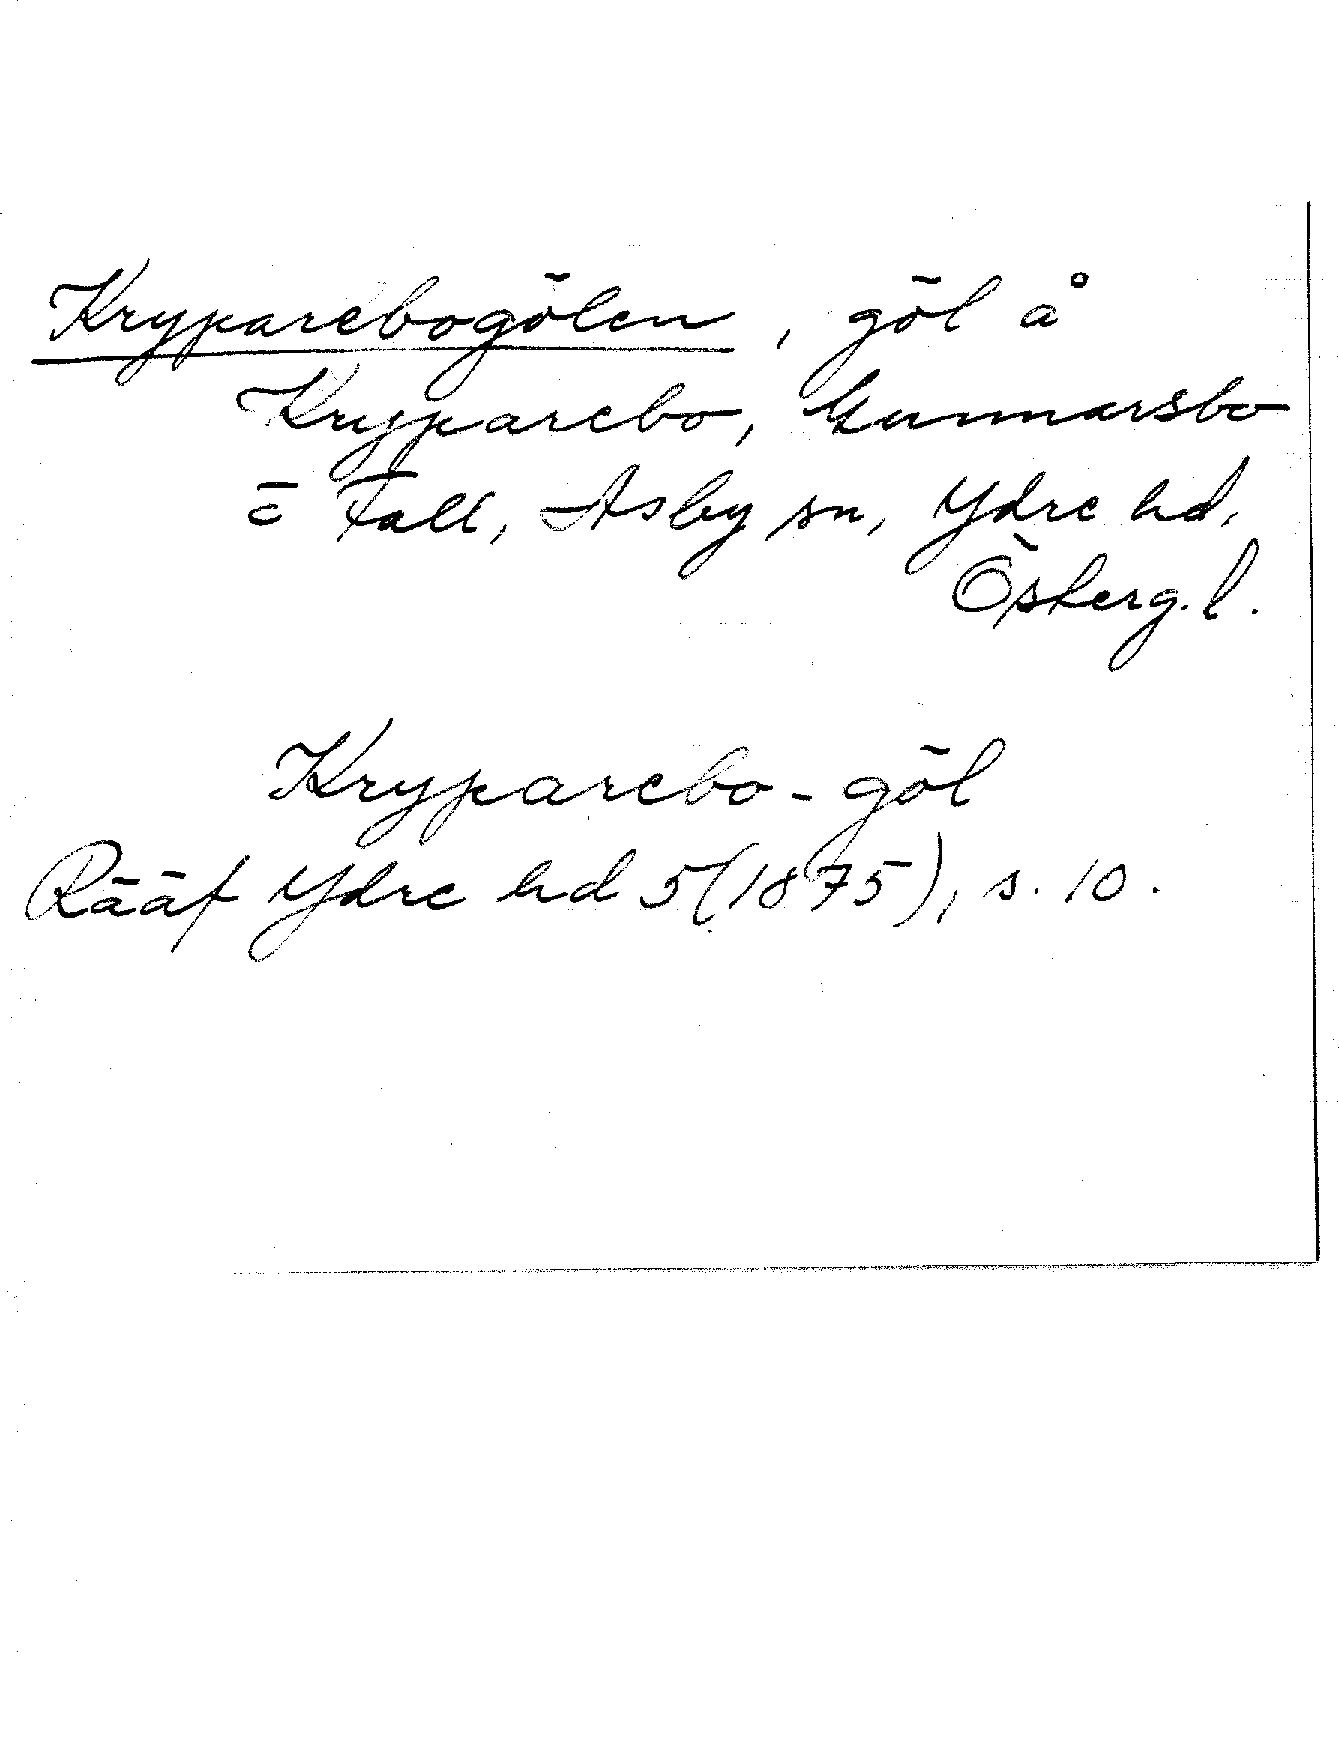 Kryparebogölen, göl å
Kryparebo, Gunnarsbo
= Fall, Asby sn, Ydre hd,
Österg. l.
Kryparebo-göl
Rääf Ydre hd 5 (1875), s. 10.